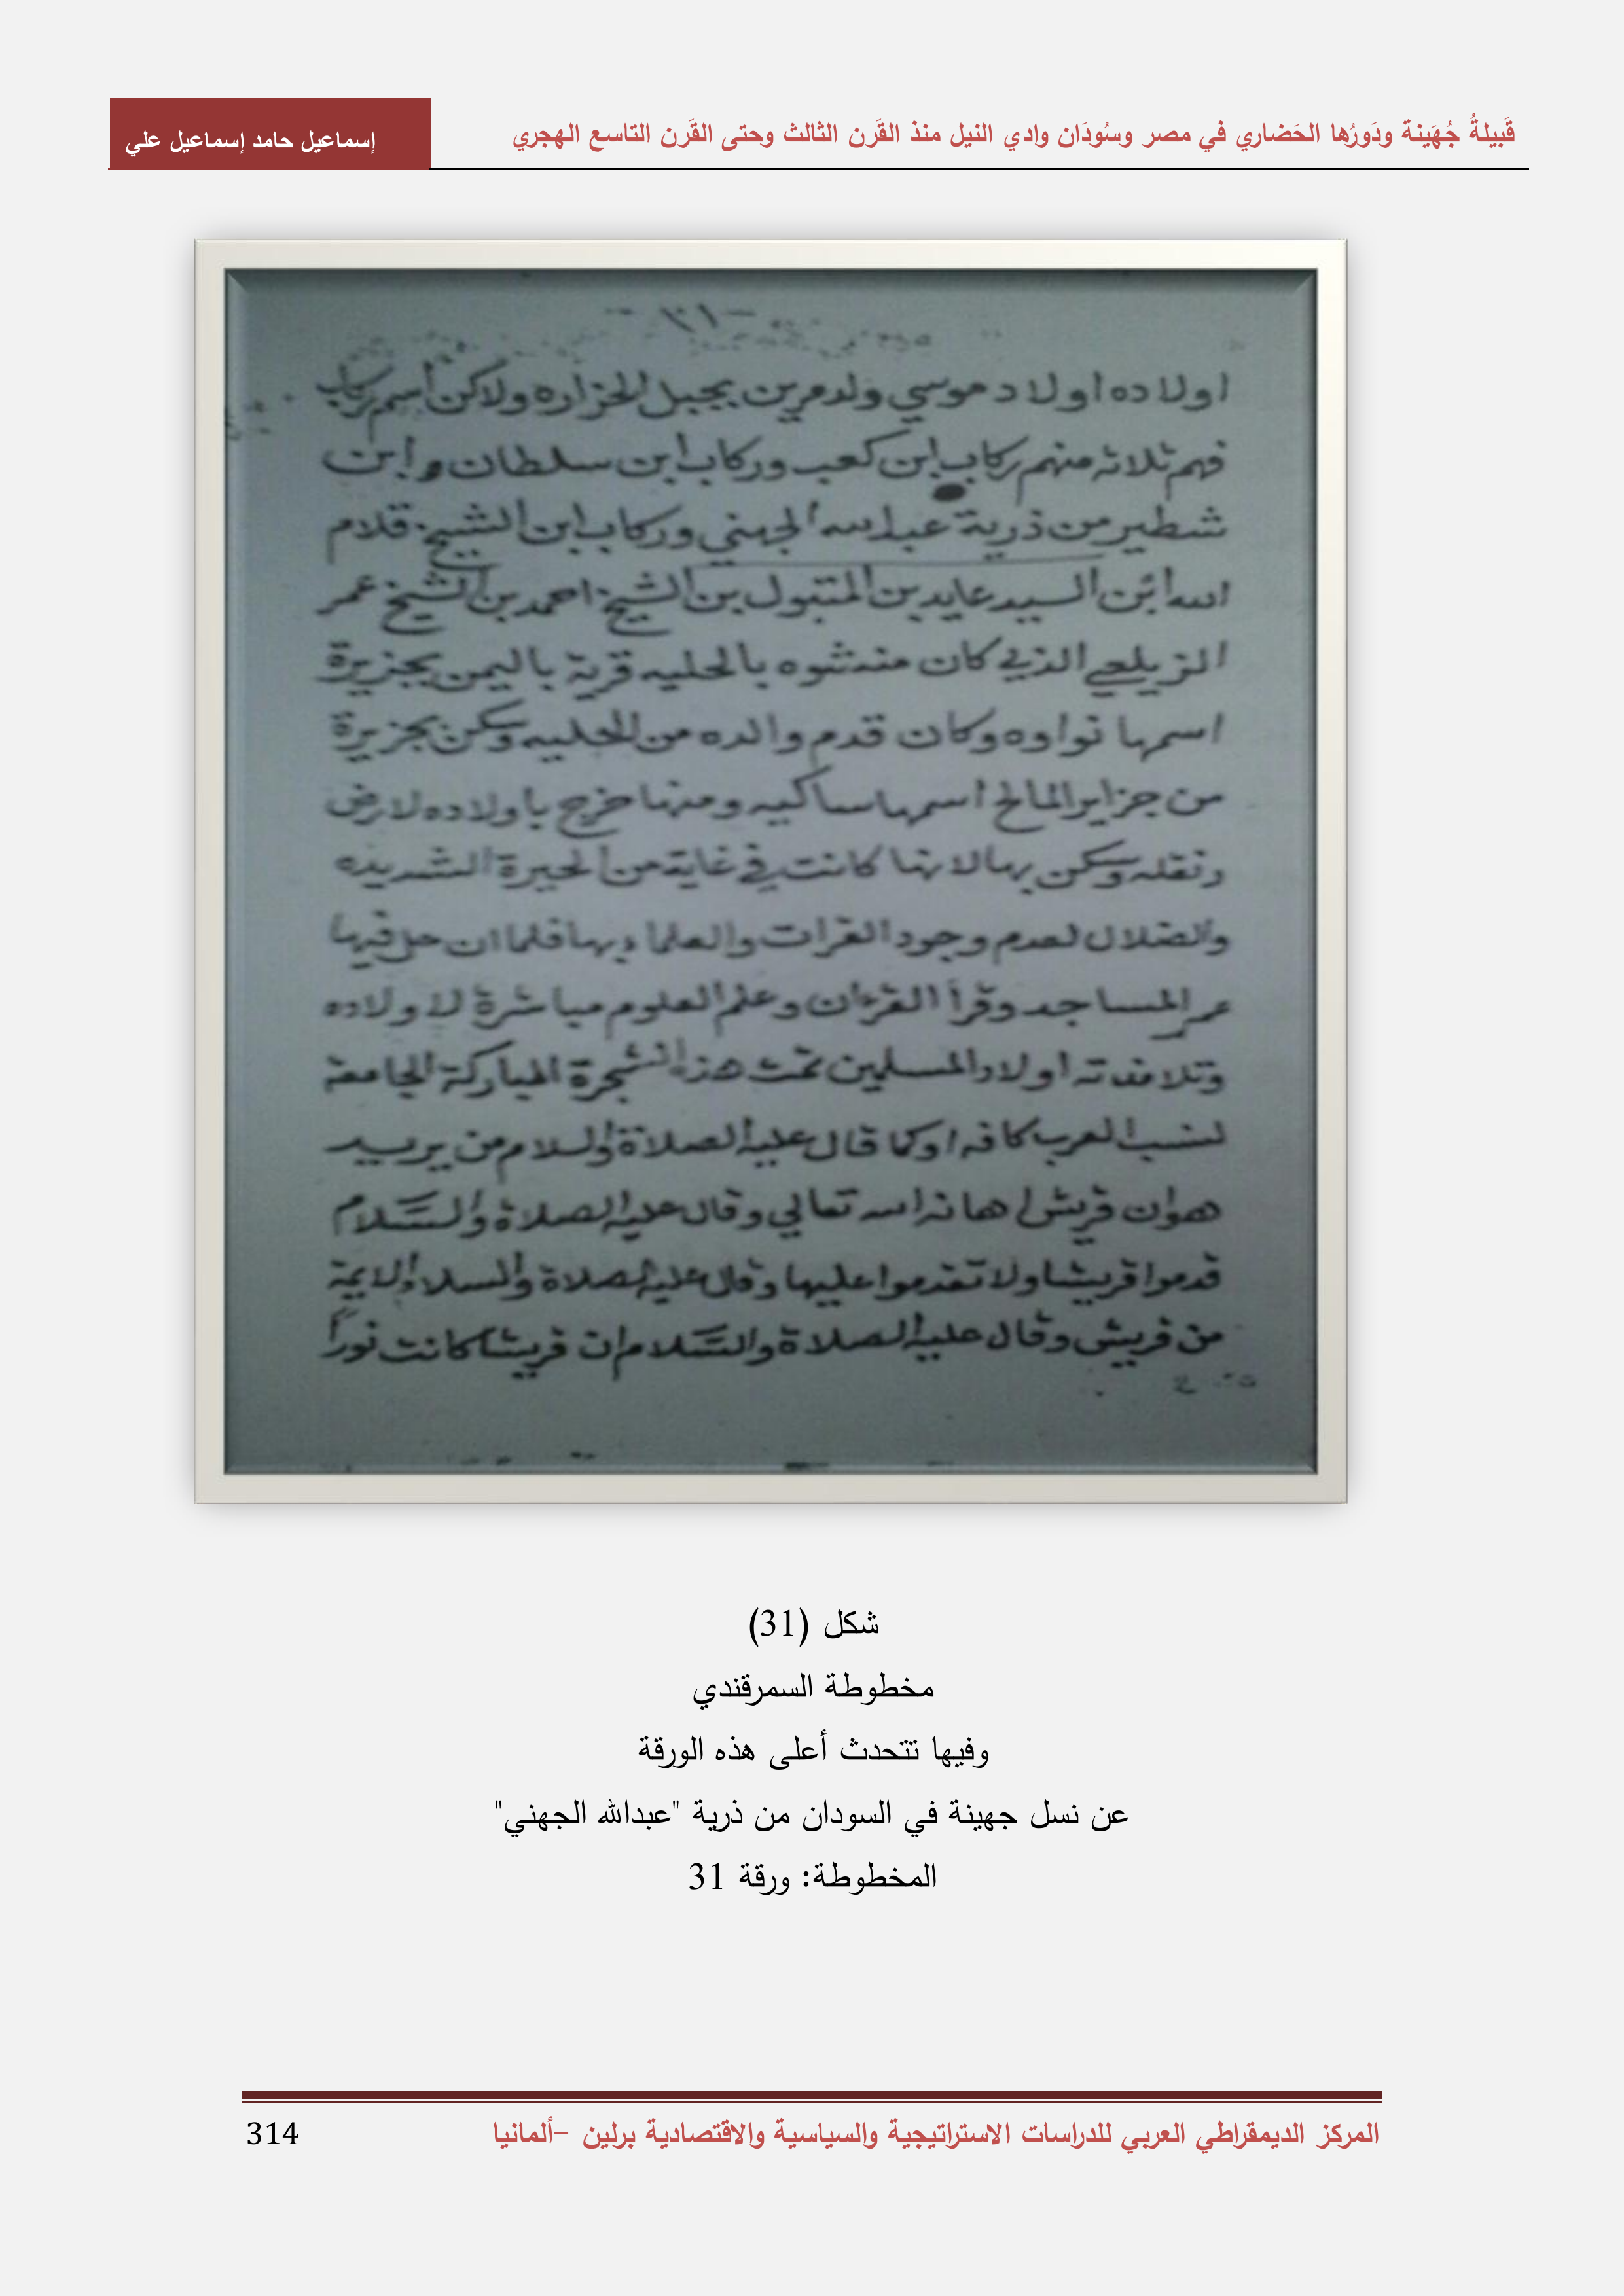 قَبيلةُ جُهَينة ودَورُها الحَضاري في مصر وسُودَان وادي النيل منذ القَرن الثالث وحتى القَرن التاسع الهجري
إسماعيل حامد إسماعيل علي
-٣١-
اولاده اولاد موسي ولد مرين بجبل الحزاره ولاكن اسم ركاب
فهم ثلاثه منهم ركاب ابن كعب وركاب ابن سلطان وابن
شطير من ذرية عبد الله الجهني وركاب ابن الشيخ غلام
الله ابن السيد عايد بن المقبول بن الشيخ احمد بن الشيخ عمر
الزيلعي الذي كان منشوه بالحليه قرية باليمن بجزيرة
اسمها نواوه وكان قدم والده من الحليه وسكن بجزيرة
من جزاير المالح اسمها سواكنيه ومنها خرج باولاده لارض
دنقله وسكن بها لانها كانت في غاية من الحيرة الشديده
والضلال لعدم وجود القران والعلما بها فلما ان حل فيها
عمر المساجد وقرأ القرءان وعلم العلوم مباشرة لاولاده
وتلامدته اولاد المسلمين تمت هذه الشجرة المباركة الجامعة
لنسب العرب كافه او كما قال عليه الصلاة والسلام من يريد
هوان قريش اهانه الله تعالي وقال عليه الصلاة والسَّلام
قدموا قريشا ولا تقدموا عليها وقال عليه الصلاة والسلام الايمة
من قريش وقال عليه الصلاة والسَّلام ان قريشا كانت نوراً
شكل (31)
مخطوطة السمرقندي
وفيها تتحدث أعلى هذه الورقة
عن نسل جهينة في السودان من ذرية "عبدالله الجهني"
المخطوطة: ورقة 31
المركز الديمقراطي العربي للدراسات الاستراتيجية والسياسية والاقتصادية برلين –ألمانيا
314